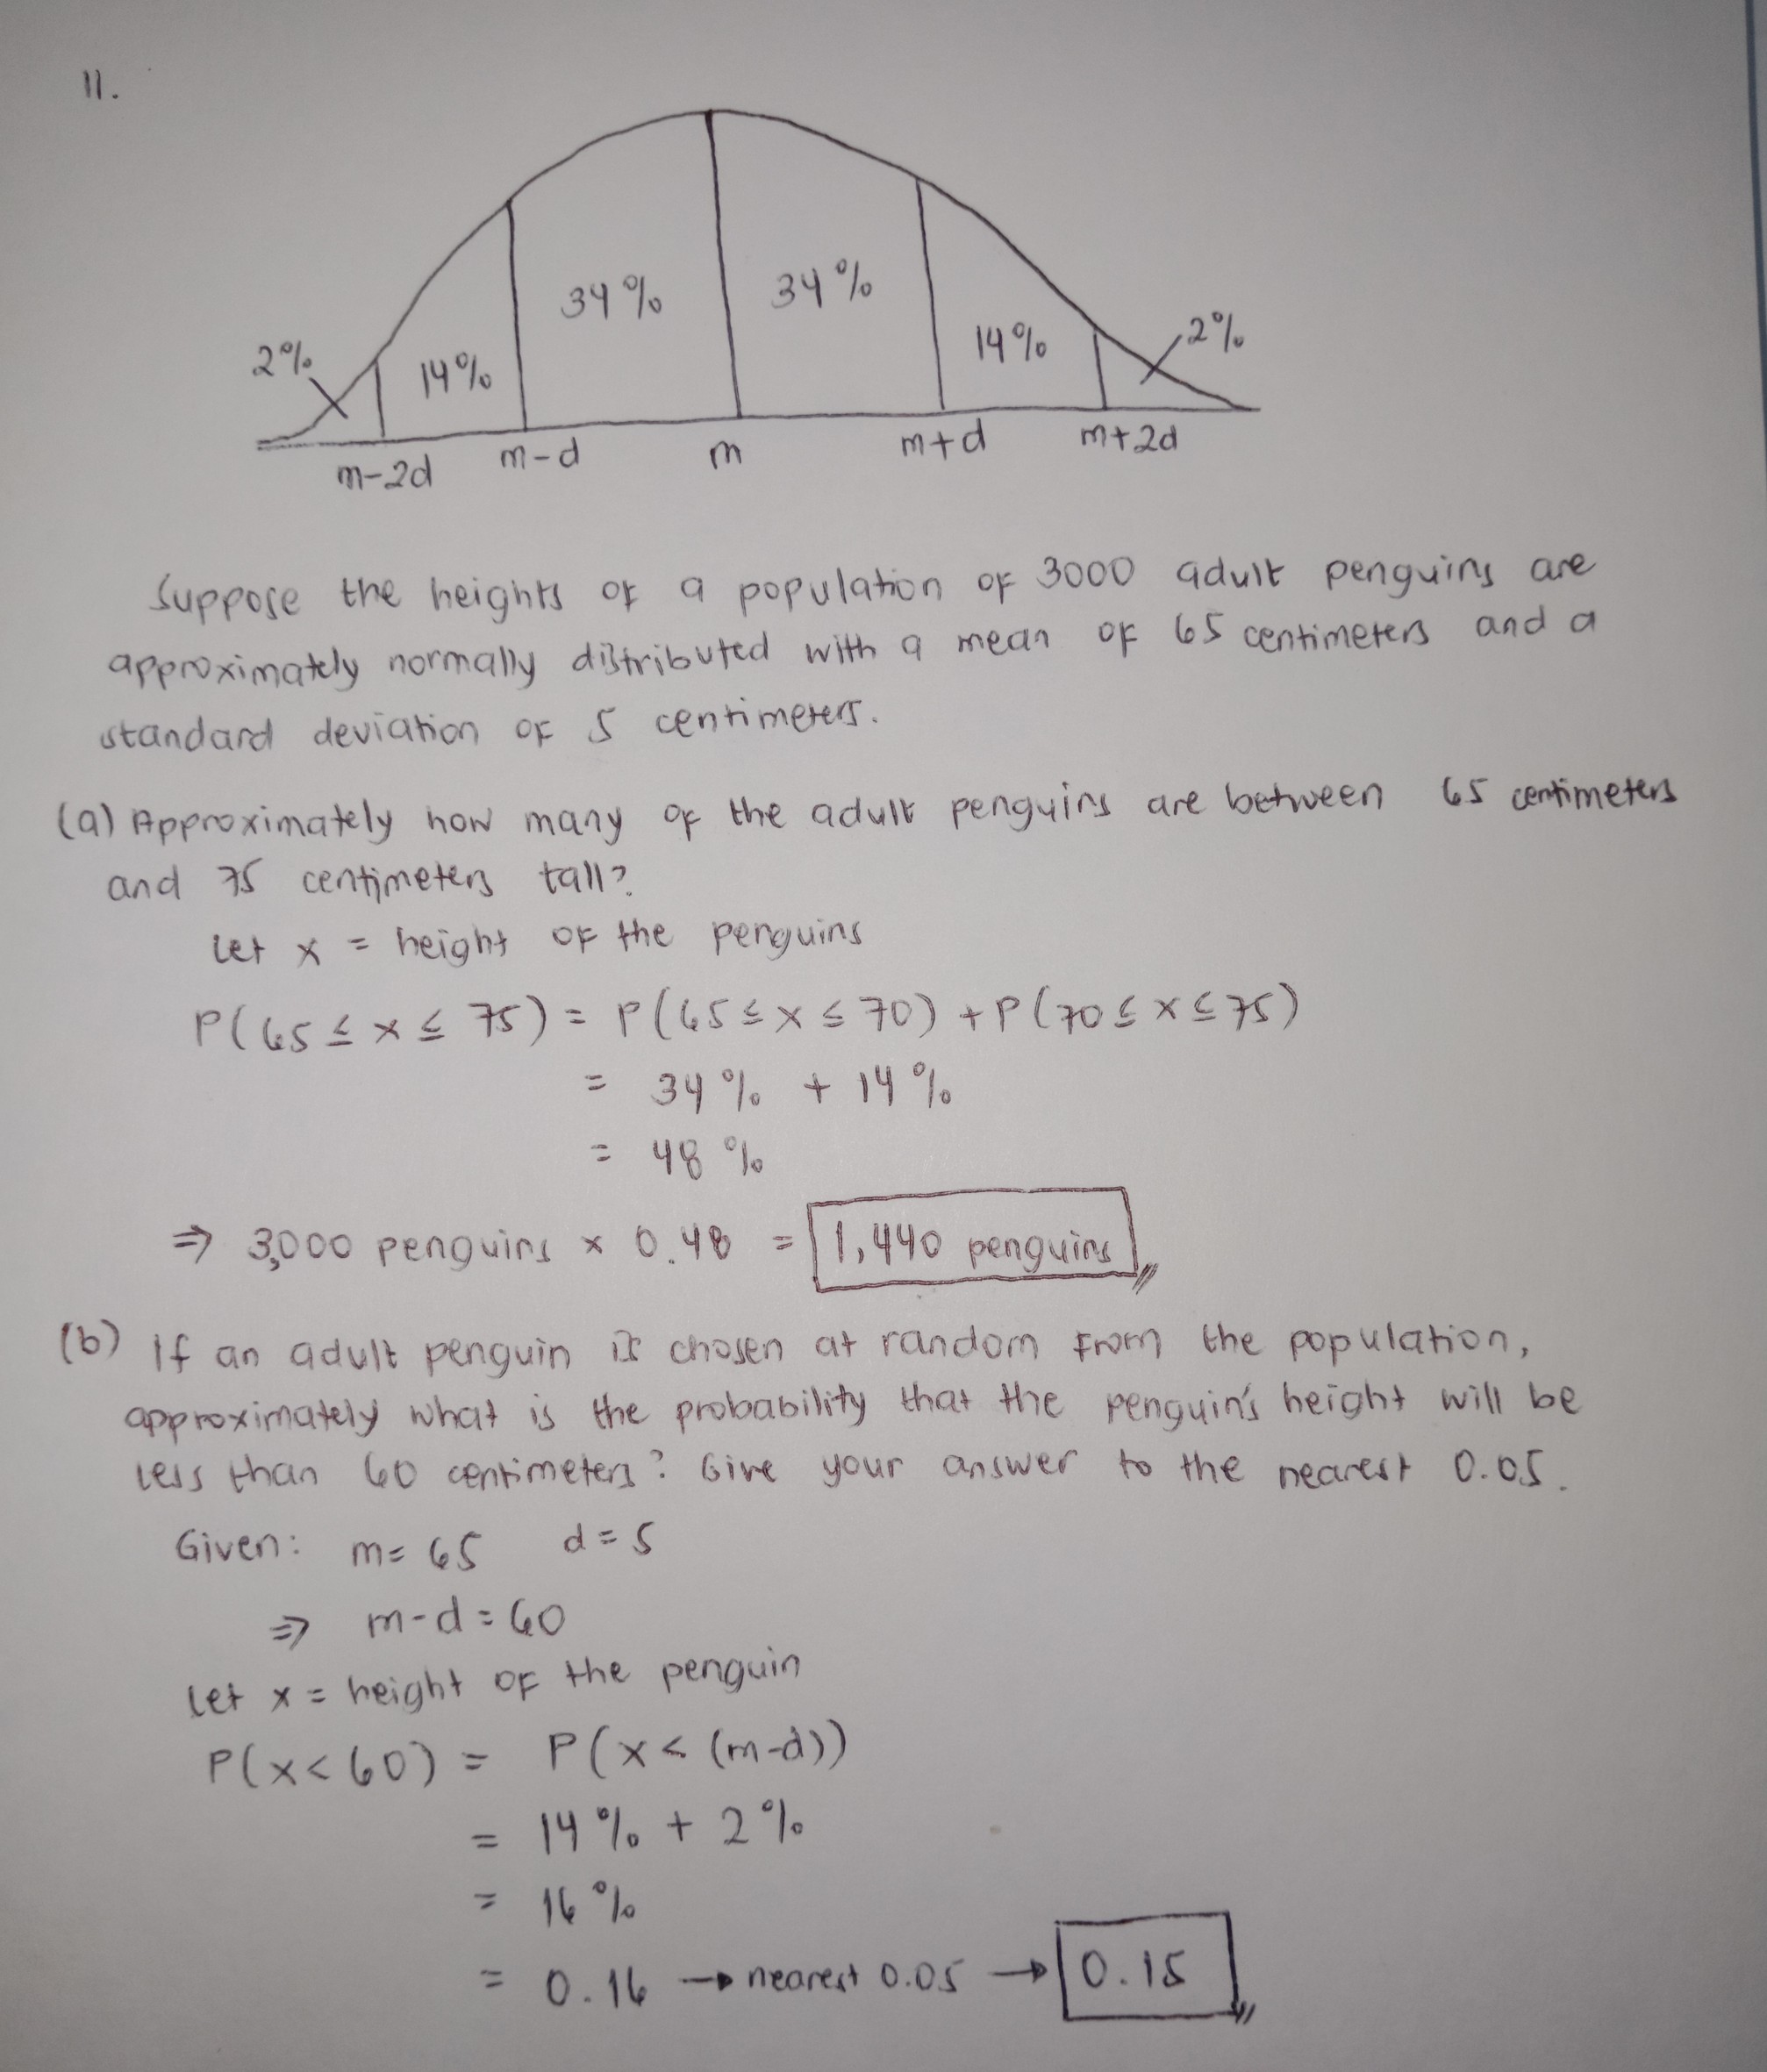 11.
34% 34%
2% 14% 14% 2%
m-2d m-d m m+d m+2d
Suppose the heights of a population of 3000 adult penguins are
approximately normally distributed with a mean of 65 centimeters and a
standard deviation of 5 centimeters.
(a) Approximately how many of the adult penguins are between 65 centimeters
and 75 centimeters tall?
Let x = height of the penguins
P(65 ≤ x ≤ 75) = P(65 ≤ x ≤ 70) + P(70 ≤ x ≤ 75)
= 34% + 14%
= 48%
⇒ 3,000 penguins × 0.48 = 1,440 penguins
(b) If an adult penguin is chosen at random from the population,
approximately what is the probability that the penguin's height will be
less than 60 centimeters? Give your answer to the nearest 0.05.
Given: m= 65 d = 5
⇒ m-d = 60
Let x = height of the penguin
P(x < 60) = P(x < (m-d))
= 14% + 2%
= 16%
= 0.16 → nearest 0.05 → 0.15